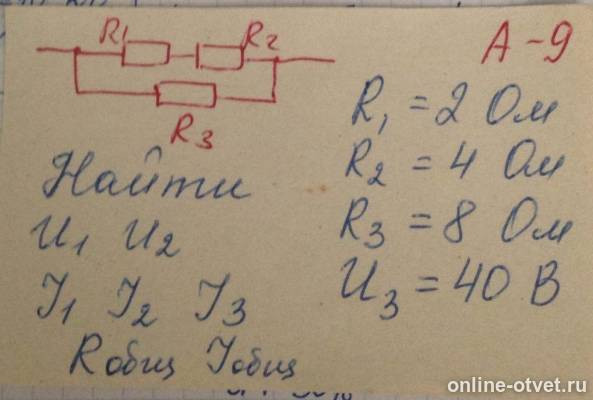 R₁ R₂
R₃
А-9
R₁ = 2 Ом
R₂ = 4 Ом
R₃ = 8 Ом
U₃ = 40 В
Найти
U₁ U₂
J₁ J₂ J₃
Rобщ Jобщ
online-otvet.ru